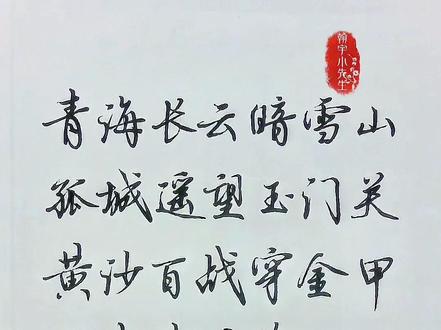 翰宇小先生
青海长云暗雪山
孤城遥望玉门关
黄沙百战穿金甲